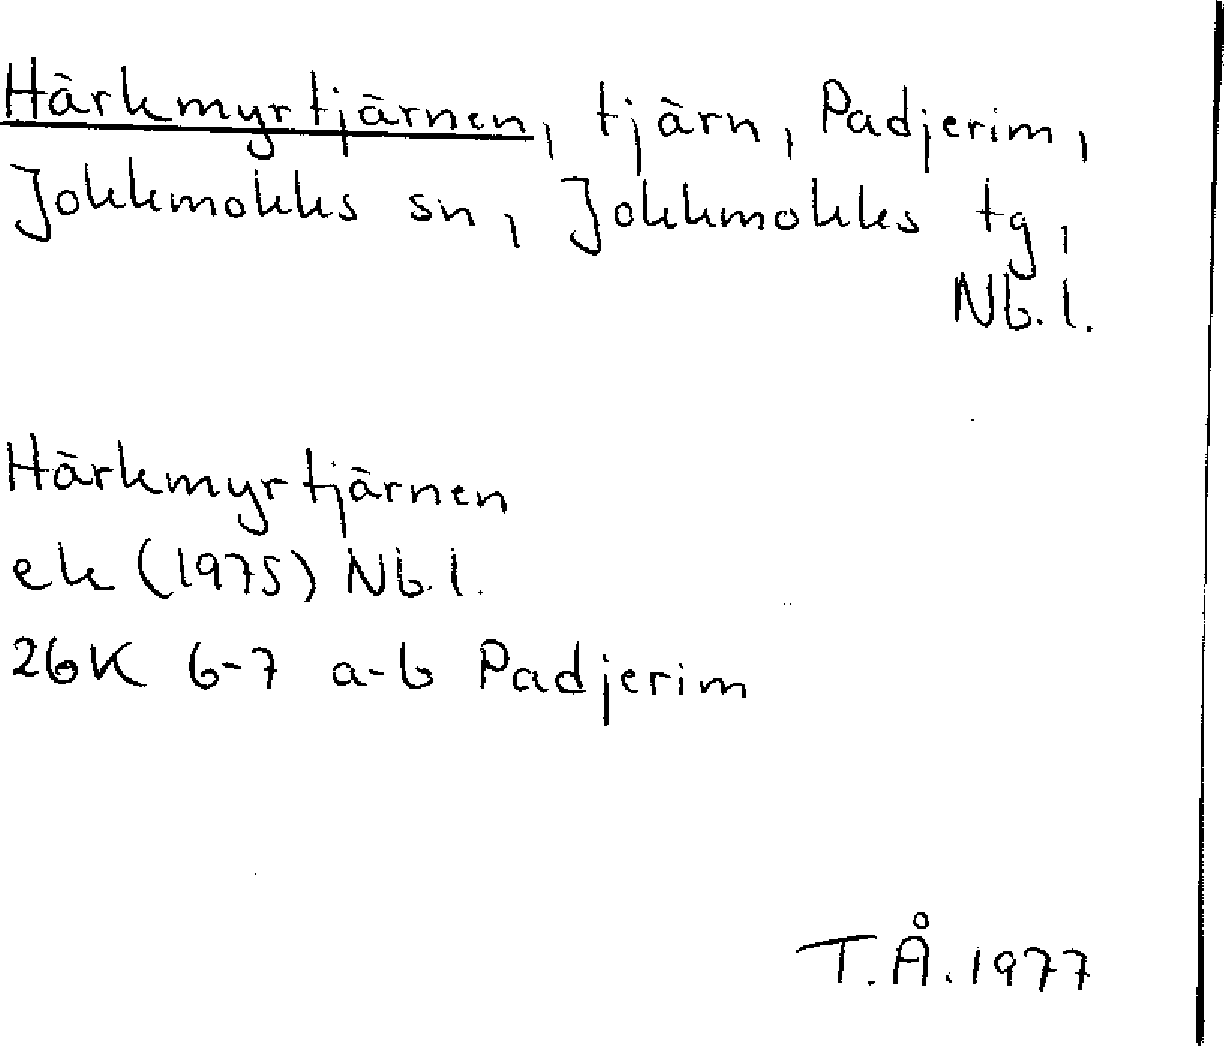 Härkmyrtjärnen, tjärn, Padjerim,
Jokkmokks sn, Jokkmokks tg,
Nb.l.
Härkmyrtjärnen
ek (1975) Nb.l.
26K 6-7 a-b Padjerim
T.Å. 1977